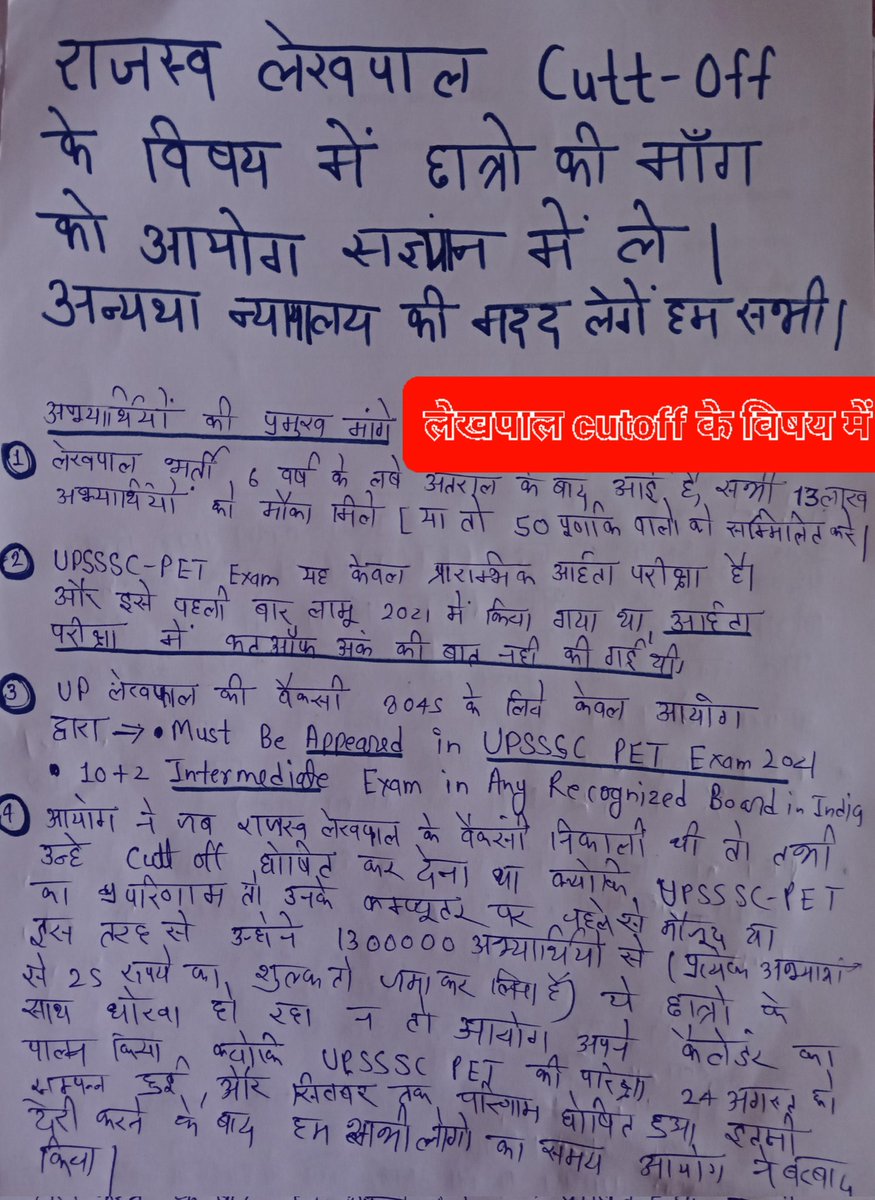 राजस्व लेखपाल Cutt-Off
के विषय में छात्रो की माँग
को आयोग सज्ञांन में ले |
अन्यथा न्यायालय की मदद लेगें हम सभी |
अभ्यार्थियों की प्रमुख मांगे
लेखपाल cutoff के विषय में
① लेखपाल भर्ती, 6 वर्ष के लंबे अंतराल के बाद आई है, सभी 13 लाख
अभ्यार्थियों को मौका मिले [ या तो 50 पूर्णांक वालो को सम्मिलित करे |
② UPSSSC-PET Exam यह केवल प्रारम्भिक आर्हता परीक्षा है।
और इसे पहली बार लागू 2021 में किया गया था, आर्हता
परीक्षा में कतऑफ अंक की बात नही की गई थी,
③ UP लेखपाल की वैकंसी 8045 के लिये केवल आयोग
द्वारा → • Must Be Appeared in UPSSSC PET Exam 2021
• 10+2 Intermediate Exam in Any Recognized Board in India
④ आयोग ने जब राजस्व लेखपाल के वैकंसी निकाली थी तो तभी
उन्हे Cutt off घोषित कर देना था क्योकि UPSSSC-PET
का परिणाम तो उनके कम्प्यूटर पर पहले से मौजूद था
इस तरह से उन्होने 1300000 अभ्यार्थियों से (प्रत्येक अभ्यार्थी
से 25 रुपये का शुल्क तो जमा कर लिया है) ये छात्रो के
साथ धोखा हो रहा न तो आयोग अपने कैलेंडर का
पालन किया क्योकि UPSSSC PET की परिक्षा 24 अगस्त को
सम्पन्न हुई, और सितंबर तक परिणाम घोषित हुआ इतनी
देरी करने के बाद हम सभी लोगो का समय आयोग ने बर्बाद
किया |